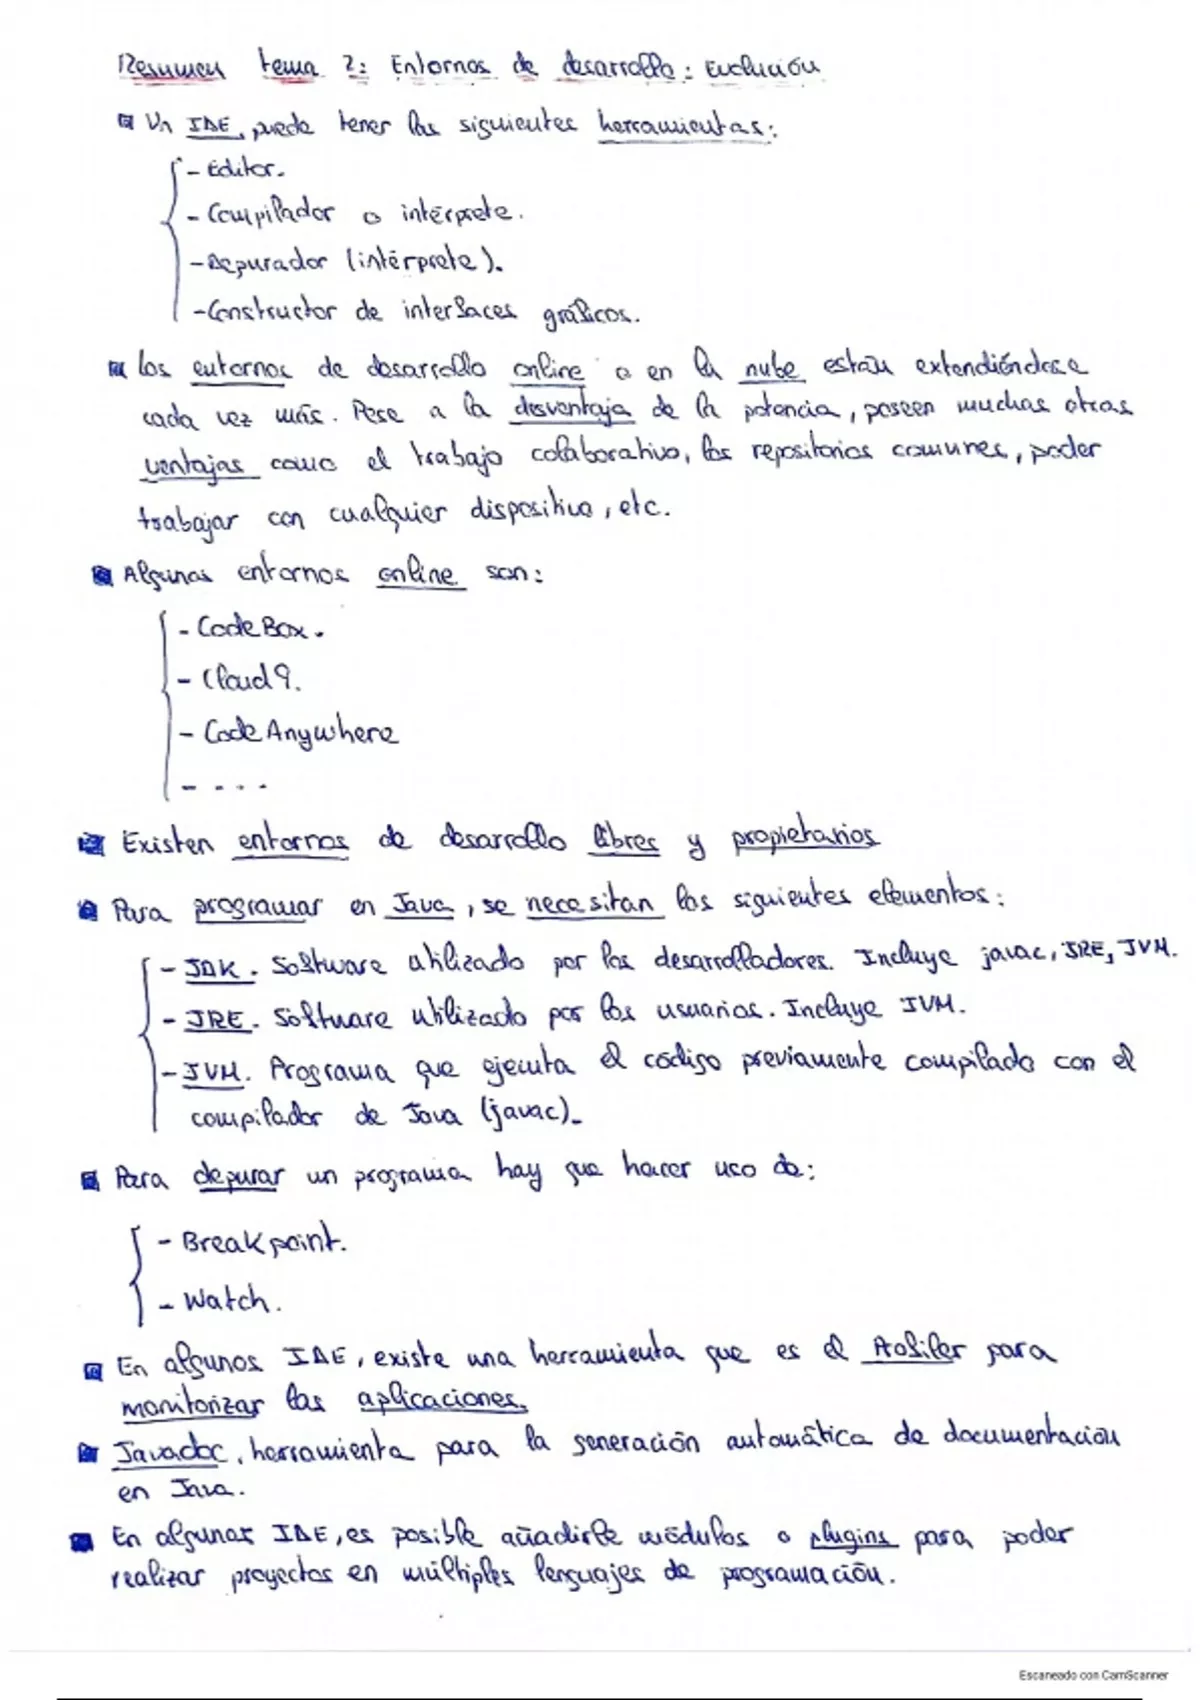 Resumen tema 2: Entornos de desarrollo: Evolución
Un IDE, puede tener las siguientes herramientas:
- Editor.
- Compilador o intérprete.
- Depurador (intérprete).
- Constructor de interfaces gráficos.
Los entornos de desarrollo online o en la nube están extendiéndose
cada vez más. Pese a la desventaja de la potencia, poseen muchas otras
ventajas como el trabajo colaborativo, los repositorios comunes, poder
trabajar con cualquier dispositivo, etc.
Algunos entornos online son:
- CodeBox.
- Cloud9.
- CodeAnywhere
- ....
Existen entornos de desarrollo libres y propietarios
Para programar en Java, se necesitan los siguientes elementos:
- JDK. Software utilizado por los desarrolladores. Incluye javac, JRE, JVM.
- JRE. Software utilizado por los usuarios. Incluye JVM.
- JVM. Programa que ejecuta el código previamente compilado con el
compilador de Java (javac).
Para depurar un programa hay que hacer uso de:
- Breakpoint.
- Watch.
En algunos IDE, existe una herramienta que es el Profiler para
monitorizar las aplicaciones.
Javadoc, herramienta para la generación automática de documentación
en Java.
En algunos IDE, es posible añadirle módulos o plugins para poder
realizar proyectos en múltiples lenguajes de programación.
Escaneado con CamScanner